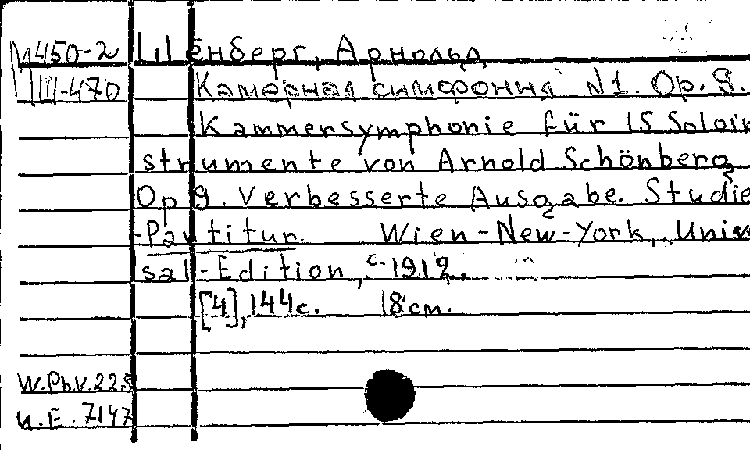 М450-2 Шёнберг, Арнольд
Ш-470 Камерная симфония №1. Op. 9.
Kammersymphonie für 15 Soloin
strumente von Arnold Schönberg
Op 9. Verbesserte Ausgabe. Studie
-Partitur. Wien-New-York, Univer
sal-Edition, c. 1912.
[4], 144 c. 18 cm.
W.Ph.V. 225
U.E. 7147